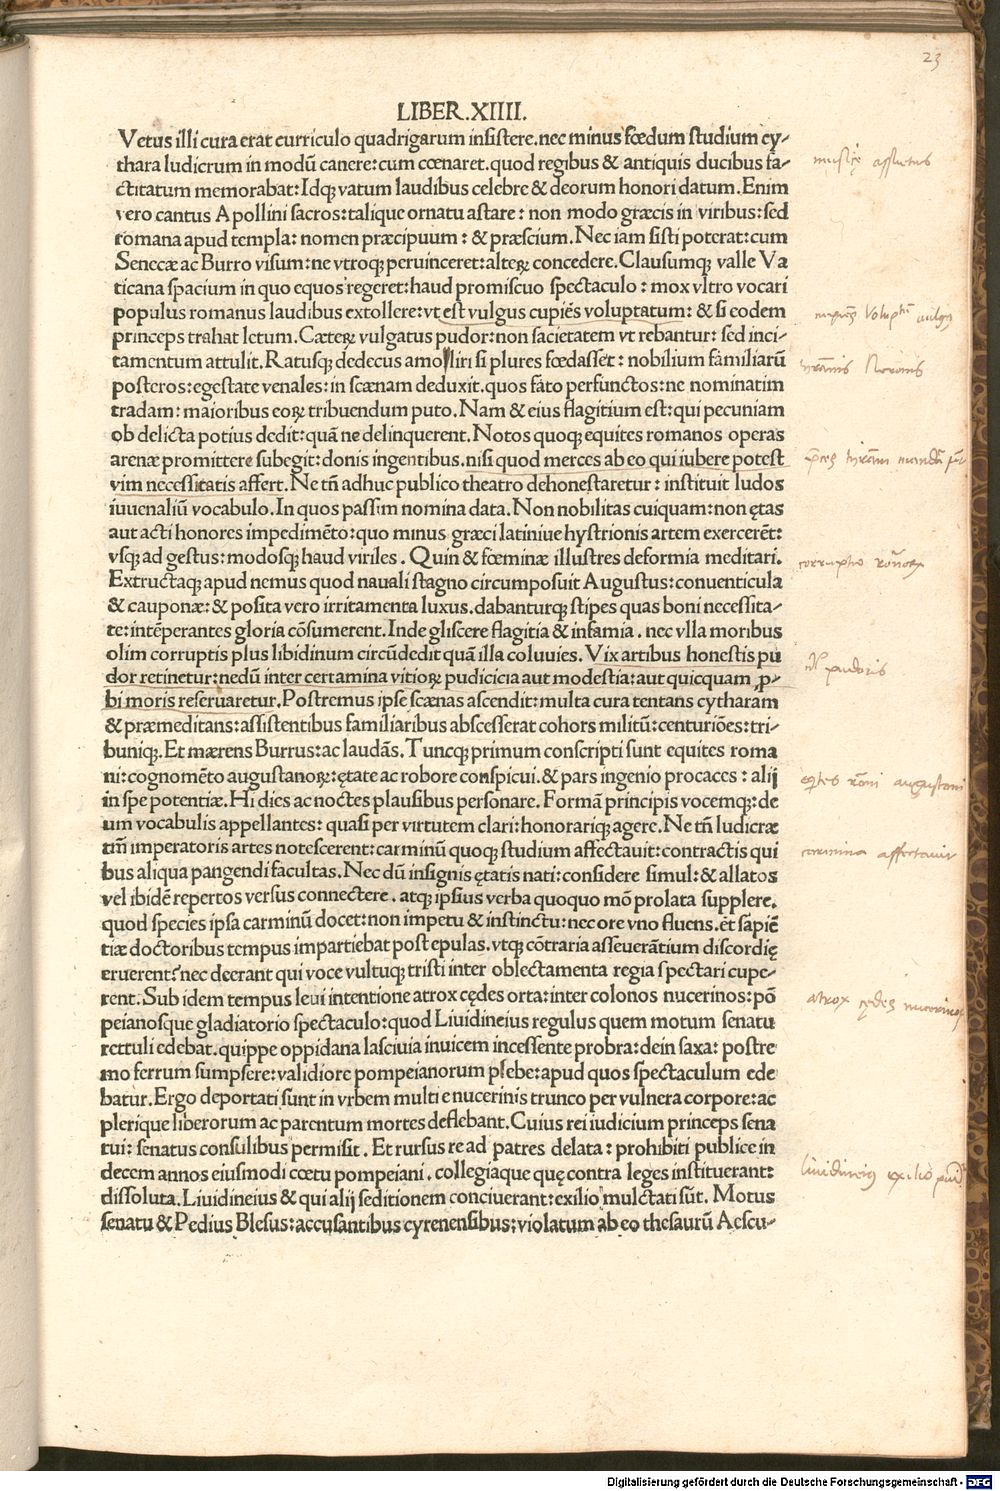 23
LIBER.XIIII.
Vetus illi cura erat curriculo quadrigarum insistere.nec minus fœdum studium cy-
thara ludicrum in modū canere:cum cœnaret.quod regibus & antiquis ducibus fa-
ctitatum memorabat:Idqꝫ vatum laudibus celebre & deorum honori datum.Enim
vero cantus Apollini sacros:talique ornatu astare: non modo græcis in viribus:sed
romana apud templa: nomen præcipuum: & præscium.Nec iam sisti poterat:cum
Senecæ ac Burro visum:ne vtroqꝫ peruinceret:alteꝝ concedere.Clausumqꝫ valle Va
ticana spacium in quo equos regeret:haud promiscuo spectaculo: mox vltro vocari
populus romanus laudibus extollere:vt est vulgus cupiēs voluptatum: & si eodem
princeps trahat letum.Cæteꝝ vulgatus pudor:non sacietatem vt rebantur: sed inci-
tamentum attulit.Ratusqꝫ dedecus amoliri si plures fœdasset: nobilium familiarū
posteros:egestate venales:in scænam deduxit.quos fato perfunctos:ne nominatim
tradam: maioribus eoꝝ tribuendum puto.Nam & eius flagitium est:qui pecuniam
ob delicta potius dedit:quā ne delinquerent.Notos quoqꝫ equites romanos operas
arenæ promittere subegit:donis ingentibus.nisi quod merces ab eo qui iubere potest
vim necessitatis affert.Ne tn̄ adhuc publico theatro dehonestaretur: instituit ludos
iuuenaliū vocabulo.In quos passim nomina data.Non nobilitas cuiquam:non ętas
aut acti honores impedimēto:quo minus græci latiniue hystrionis artem exercerēt:
vsqꝫ ad gestus:modosqꝫ haud viriles. Quin & fœminæ illustres deformia meditari.
Extructaqꝫ apud nemus quod nauali stagno circumposuit Augustus:conuenticula
& cauponæ:& posita vero irritamenta luxus.dabanturqꝫ stipes quas boni necessita-
te:intēperantes gloria cōsumerent.Inde gliscere flagitia & infamia. nec vlla moribus
olim corruptis plus libidinum circūdedit quā illa coluuies. Vix artibus honestis pu
dor retinetur:nedū inter certamina vitioꝝ pudicicia aut modestia:aut quicquam ꝓ-
bi moris reseruaretur.Postremus ipse scænas ascendit:multa cura tentans cytharam
& præmeditans:assistentibus familiaribus abscesserat cohors militū:centuriōes:tri-
buniqꝫ.Et mærens Burrus:ac laudās.Tuncqꝫ primum conscripti sunt equites roma
ni:cognomēto augustanoꝝ:ętate ac robore conspicui.& pars ingenio procaces: alij
in spe potentiæ.Hi dies ac noctes plausibus personare.Formā principis vocemqꝫ:de
um vocabulis appellantes: quasi per virtutem clari:honorariqꝫ agere.Ne tn̄ ludicræ
tm̄ imperatoris artes notescerent:carminū quoqꝫ studium affectauit:contractis qui
bus aliqua pangendi facultas.Nec dū insignis ętatis nati:considere simul:& allatos
vel ibidē repertos versus connectere. atqꝫ ipsius verba quoquo mō prolata supplere.
quod species ipsa carminū docet:non impetu & instinctu:nec ore vno fluens.et sapiē
tiæ doctoribus tempus impartiebat post epulas.vtqꝫ cōtraria asseuerātium discordię
eruerent:nec deerant qui voce vultuqꝫ tristi inter oblectamenta regia spectari cupe-
rent.Sub idem tempus leui intentione atrox cędes orta:inter colonos nucerinos:pō
peianosque gladiatorio spectaculo:quod Liuidineius regulus quem motum senatu
rettuli edebat.quippe oppidana lasciuia inuicem incessente probra:dein saxa: postre
mo ferrum sumpsere:validiore pompeianorum plebe:apud quos spectaculum ede
batur.Ergo deportati sunt in vrbem multi e nucerinis trunco per vulnera corpore:ac
plerique liberorum ac parentum mortes deflebant.Cuius rei iudicium princeps sena
tui: senatus consulibus permisit. Et rursus re ad patres delata: prohibiti publice in
decem annos eiusmodi cœtu pompeiani.collegiaque quę contra leges instituerant:
dissoluta.Liuidineius & qui alij seditionem conciuerant:exilio mulctati sūt. Motus
senatu & Pedius Blesus:accusantibus cyrenensibus:violatum ab eo thesaurū Aescu-
musicę assuetus
tyrannis Neronis
corruptio
pudoris
augustani
carmina affectauit
atrox cędes
liuidineius exilio
Digitalisierung gefördert durch die Deutsche Forschungsgemeinschaft - DFG